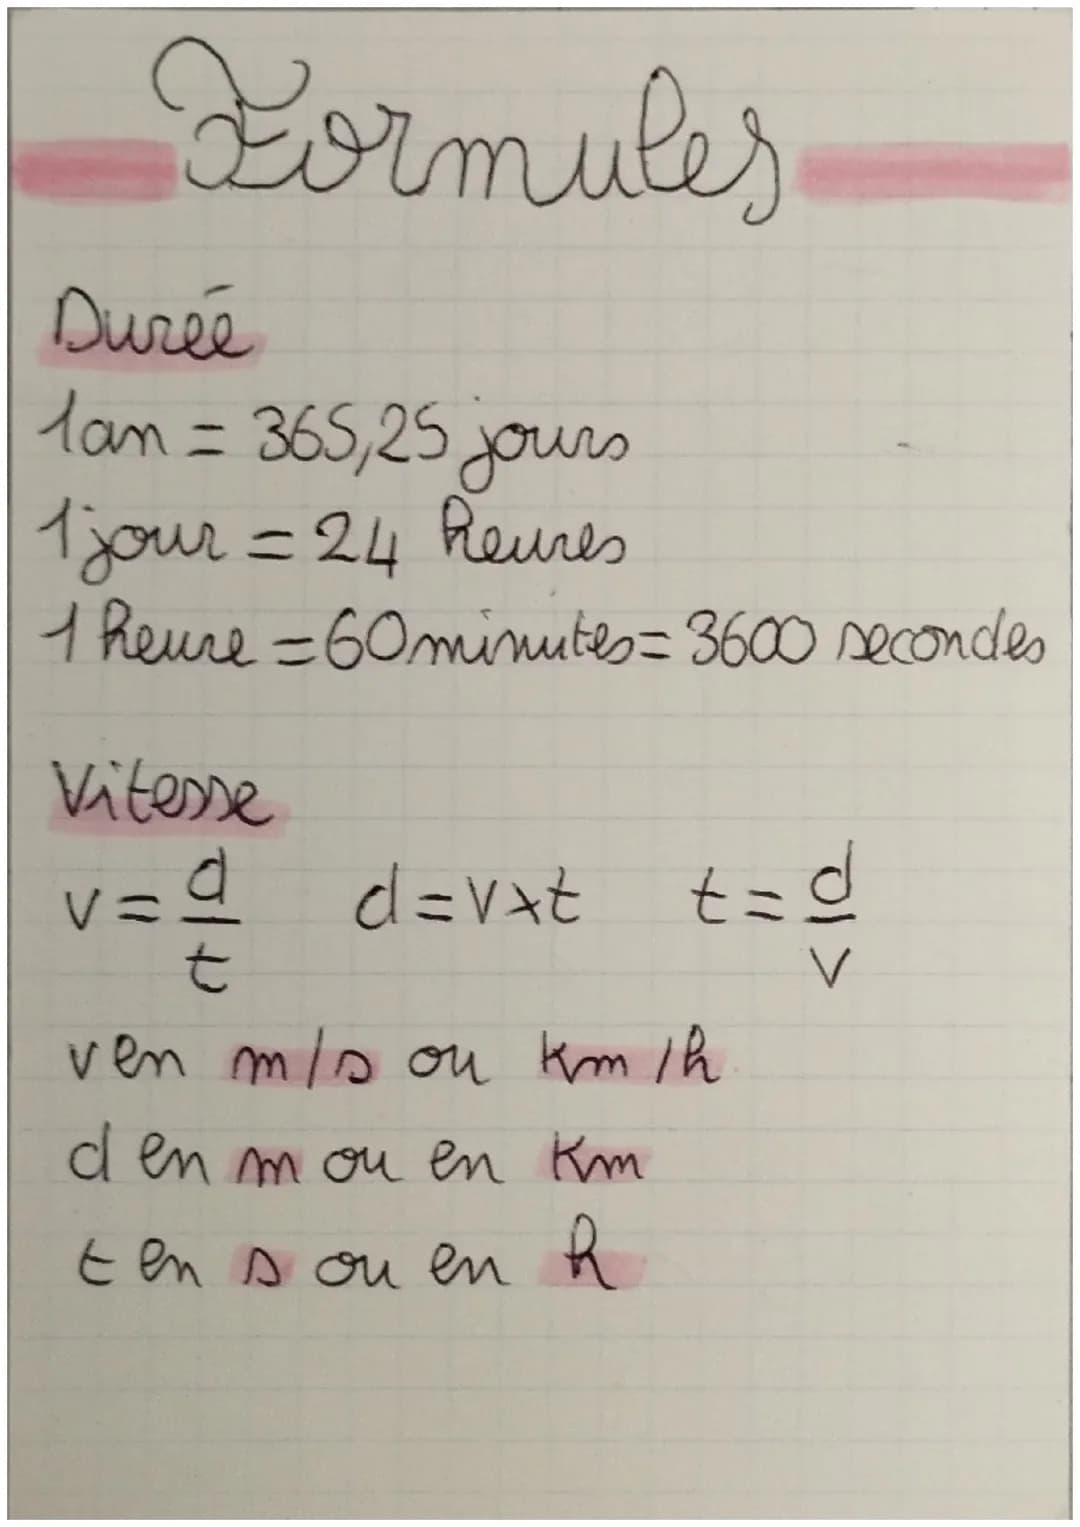 Formules
Durée
1an = 365,25 jours
1 jour = 24 heures
1 heure = 60 minutes = 3600 secondes
Vitesse
v = d/t d = v x t t = d/v
v en m/s ou km/h
d en m ou en km
t en s ou en h